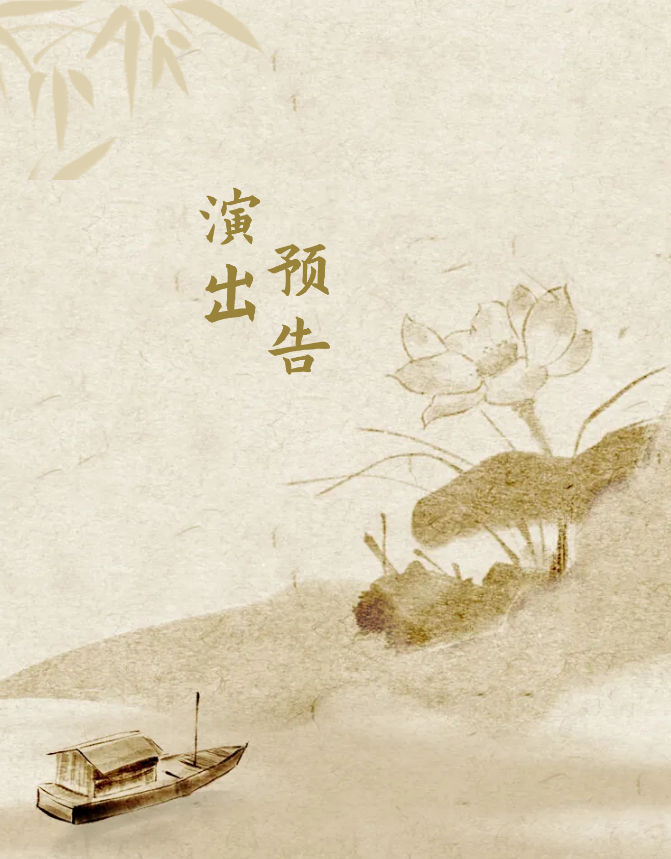 演出
预告